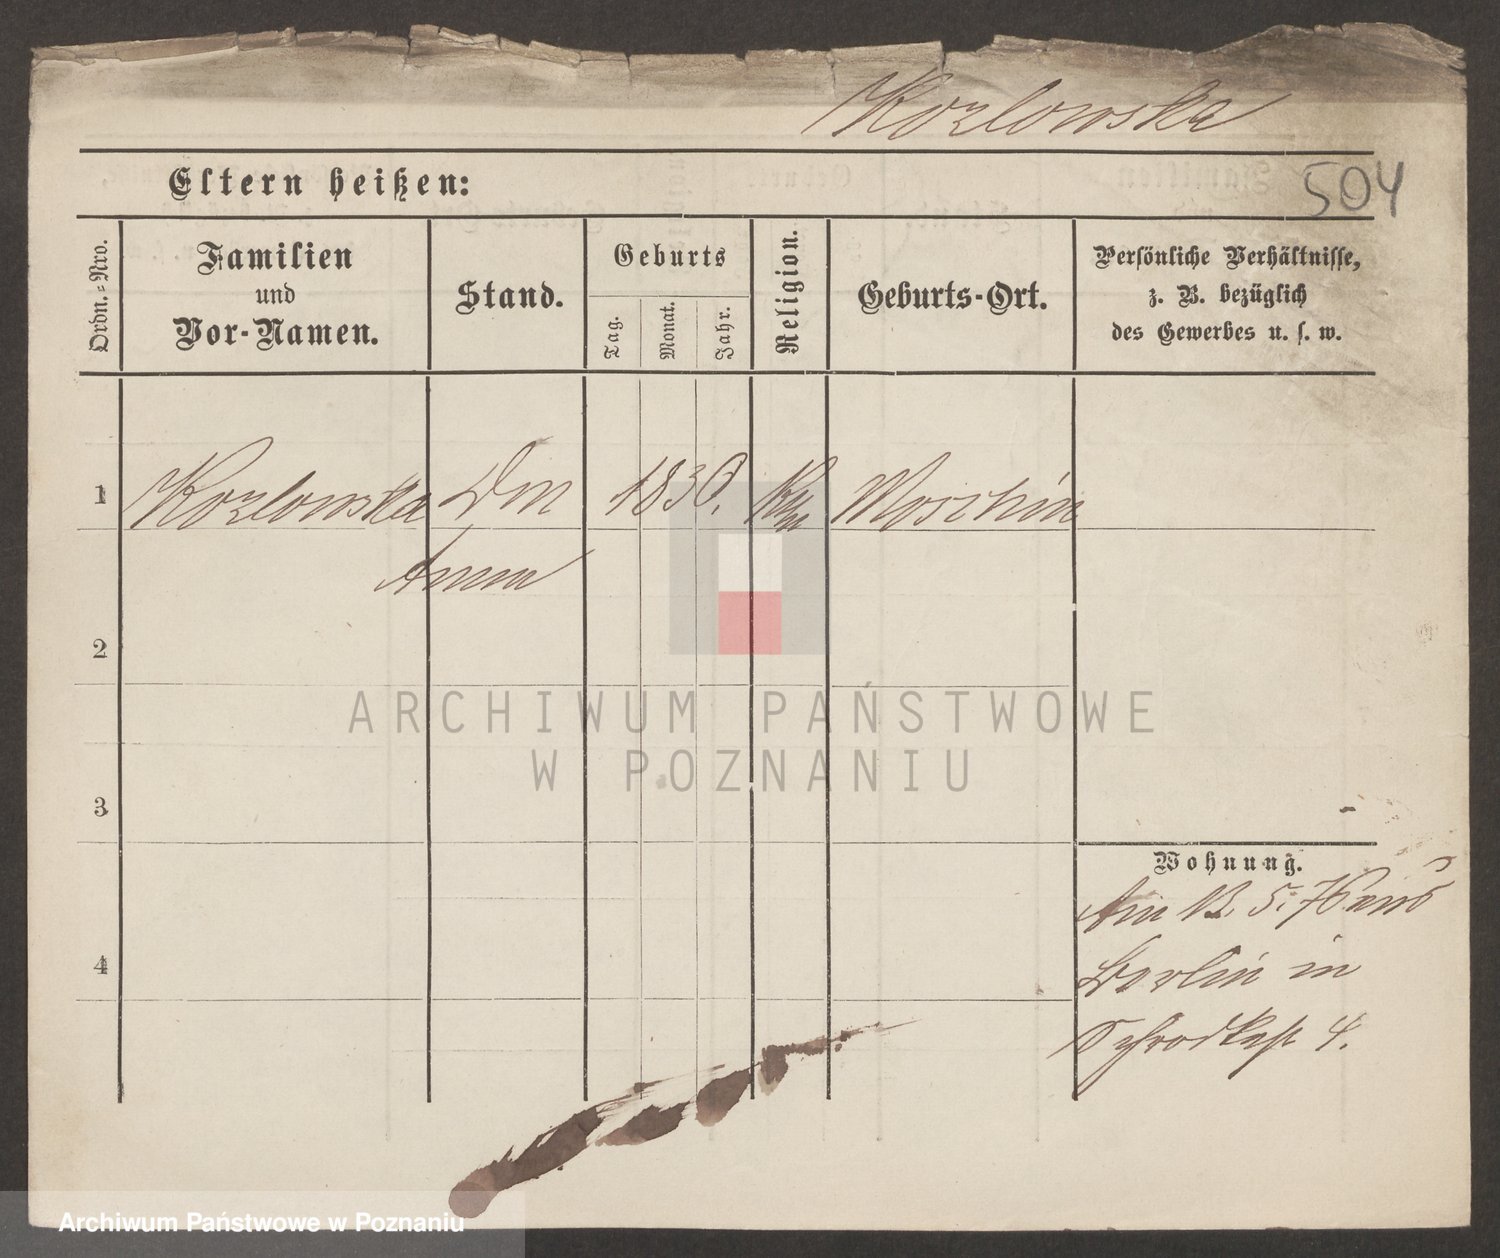 Kozlowska
504
Eltern heißen:
Ordn.=Nro.
Familien
und
Vor-Namen.
Stand.
Geburts
Tag.
Monat.
Jahr.
Religion.
Geburts-Ort.
Persönliche Verhältnisse,
z. B. bezüglich
des Gewerbes u. s. w.
1
Kozlowska 1830. Moschin
Anna
2
3
4
Wohnung.
Am 5. 76 aus
Berlin in
4.
ARCHIWUM PAŃSTWOWE
W POZNANIU
Archiwum Państwowe w Poznaniu